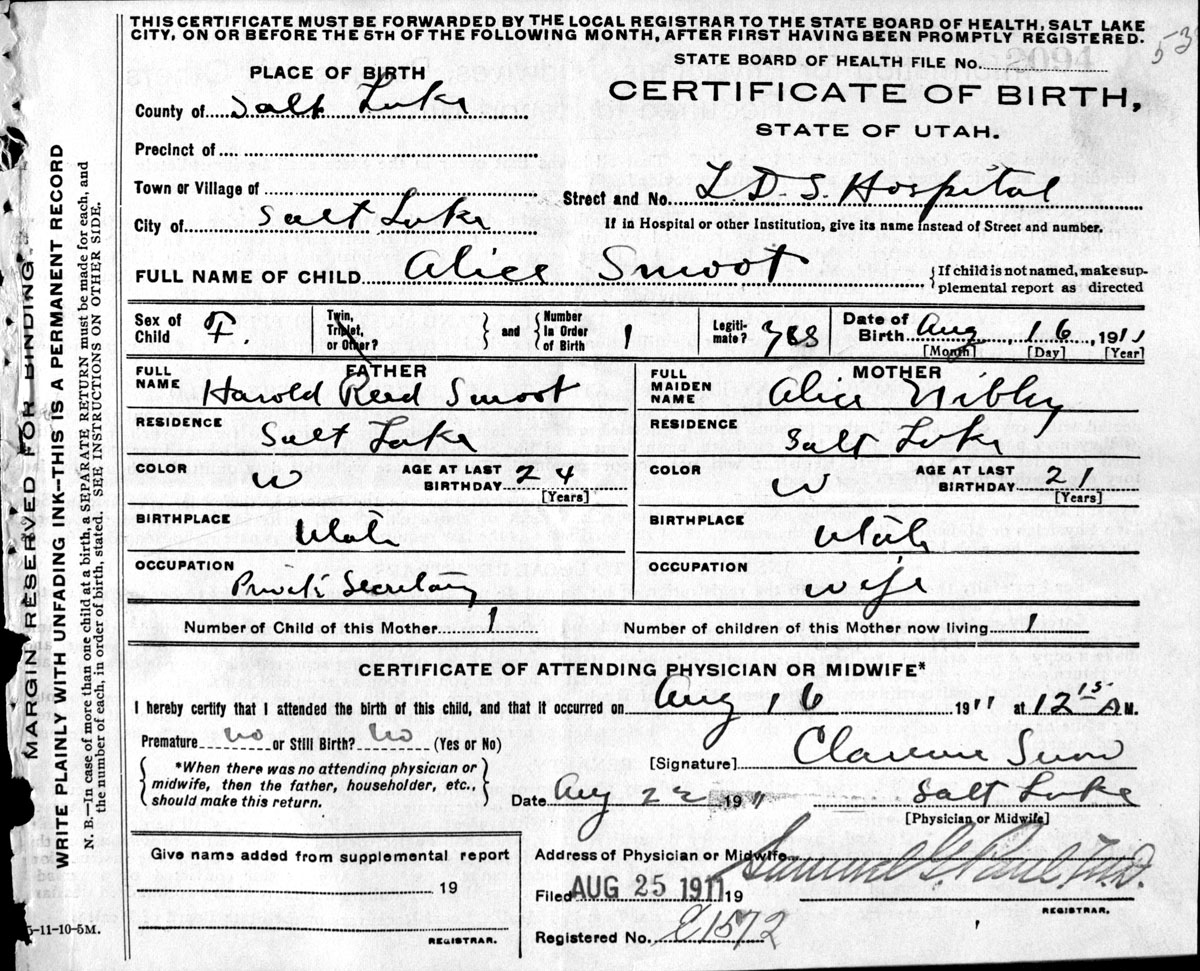 THIS CERTIFICATE MUST BE FORWARDED BY THE LOCAL REGISTRAR TO THE STATE BOARD OF HEALTH, SALT LAKE
CITY, ON OR BEFORE THE 5TH OF THE FOLLOWING MONTH, AFTER FIRST HAVING BEEN PROMPTLY REGISTERED.
53
STATE BOARD OF HEALTH FILE No.
PLACE OF BIRTH
CERTIFICATE OF BIRTH,
STATE OF UTAH.
County of Salt Lake
Precinct of
Town or Village of
Street and No. L.D.S. Hospital
City of Salt Lake
If in Hospital or other Institution, give its name instead of Street and number.
FULL NAME OF CHILD Alice Smoot
{If child is not named, make sup-
plemental report as directed
Sex of Child F.
Twin, Triplet, or Other? } and {Number In Order of Birth 1
Legiti-mate? yes
Date of Birth Aug 16, 1911
[Month] [Day] [Year]
FATHER
FULL NAME Harold Reed Smoot
RESIDENCE Salt Lake
COLOR W AGE AT LAST BIRTHDAY 24
[Years]
BIRTHPLACE Utah
OCCUPATION Private Secretary
MOTHER
FULL MAIDEN NAME Alice Nibley
RESIDENCE Salt Lake
COLOR W AGE AT LAST BIRTHDAY 21
[Years]
BIRTHPLACE Utah
OCCUPATION wife
Number of Child of this Mother 1 Number of children of this Mother now living 1
CERTIFICATE OF ATTENDING PHYSICIAN OR MIDWIFE*
I hereby certify that I attended the birth of this child, and that it occurred on Aug 16 1911 at 12 15 A M.
Premature no or Still Birth? no (Yes or No)
{*When there was no attending physician or
midwife, then the father, householder, etc.,
should make this return.}
[Signature] Clarence Snow
Date Aug 22 1911 Salt Lake
[Physician or Midwife]
Give name added from supplemental report
19
REGISTRAR.
Address of Physician or Midwife
Filed AUG 25 1911 19 Samuel G. Paul M.D.
REGISTRAR.
Registered No. 1572
MARGIN RESERVED FOR BINDING.
WRITE PLAINLY WITH UNFADING INK--THIS IS A PERMANENT RECORD
N. B.--In case of more than one child at a birth, SEPARATE RETURN must be made for each, and
the number of each, in order of birth, stated. SEE INSTRUCTIONS ON OTHER SIDE.
5-11-10-5M.